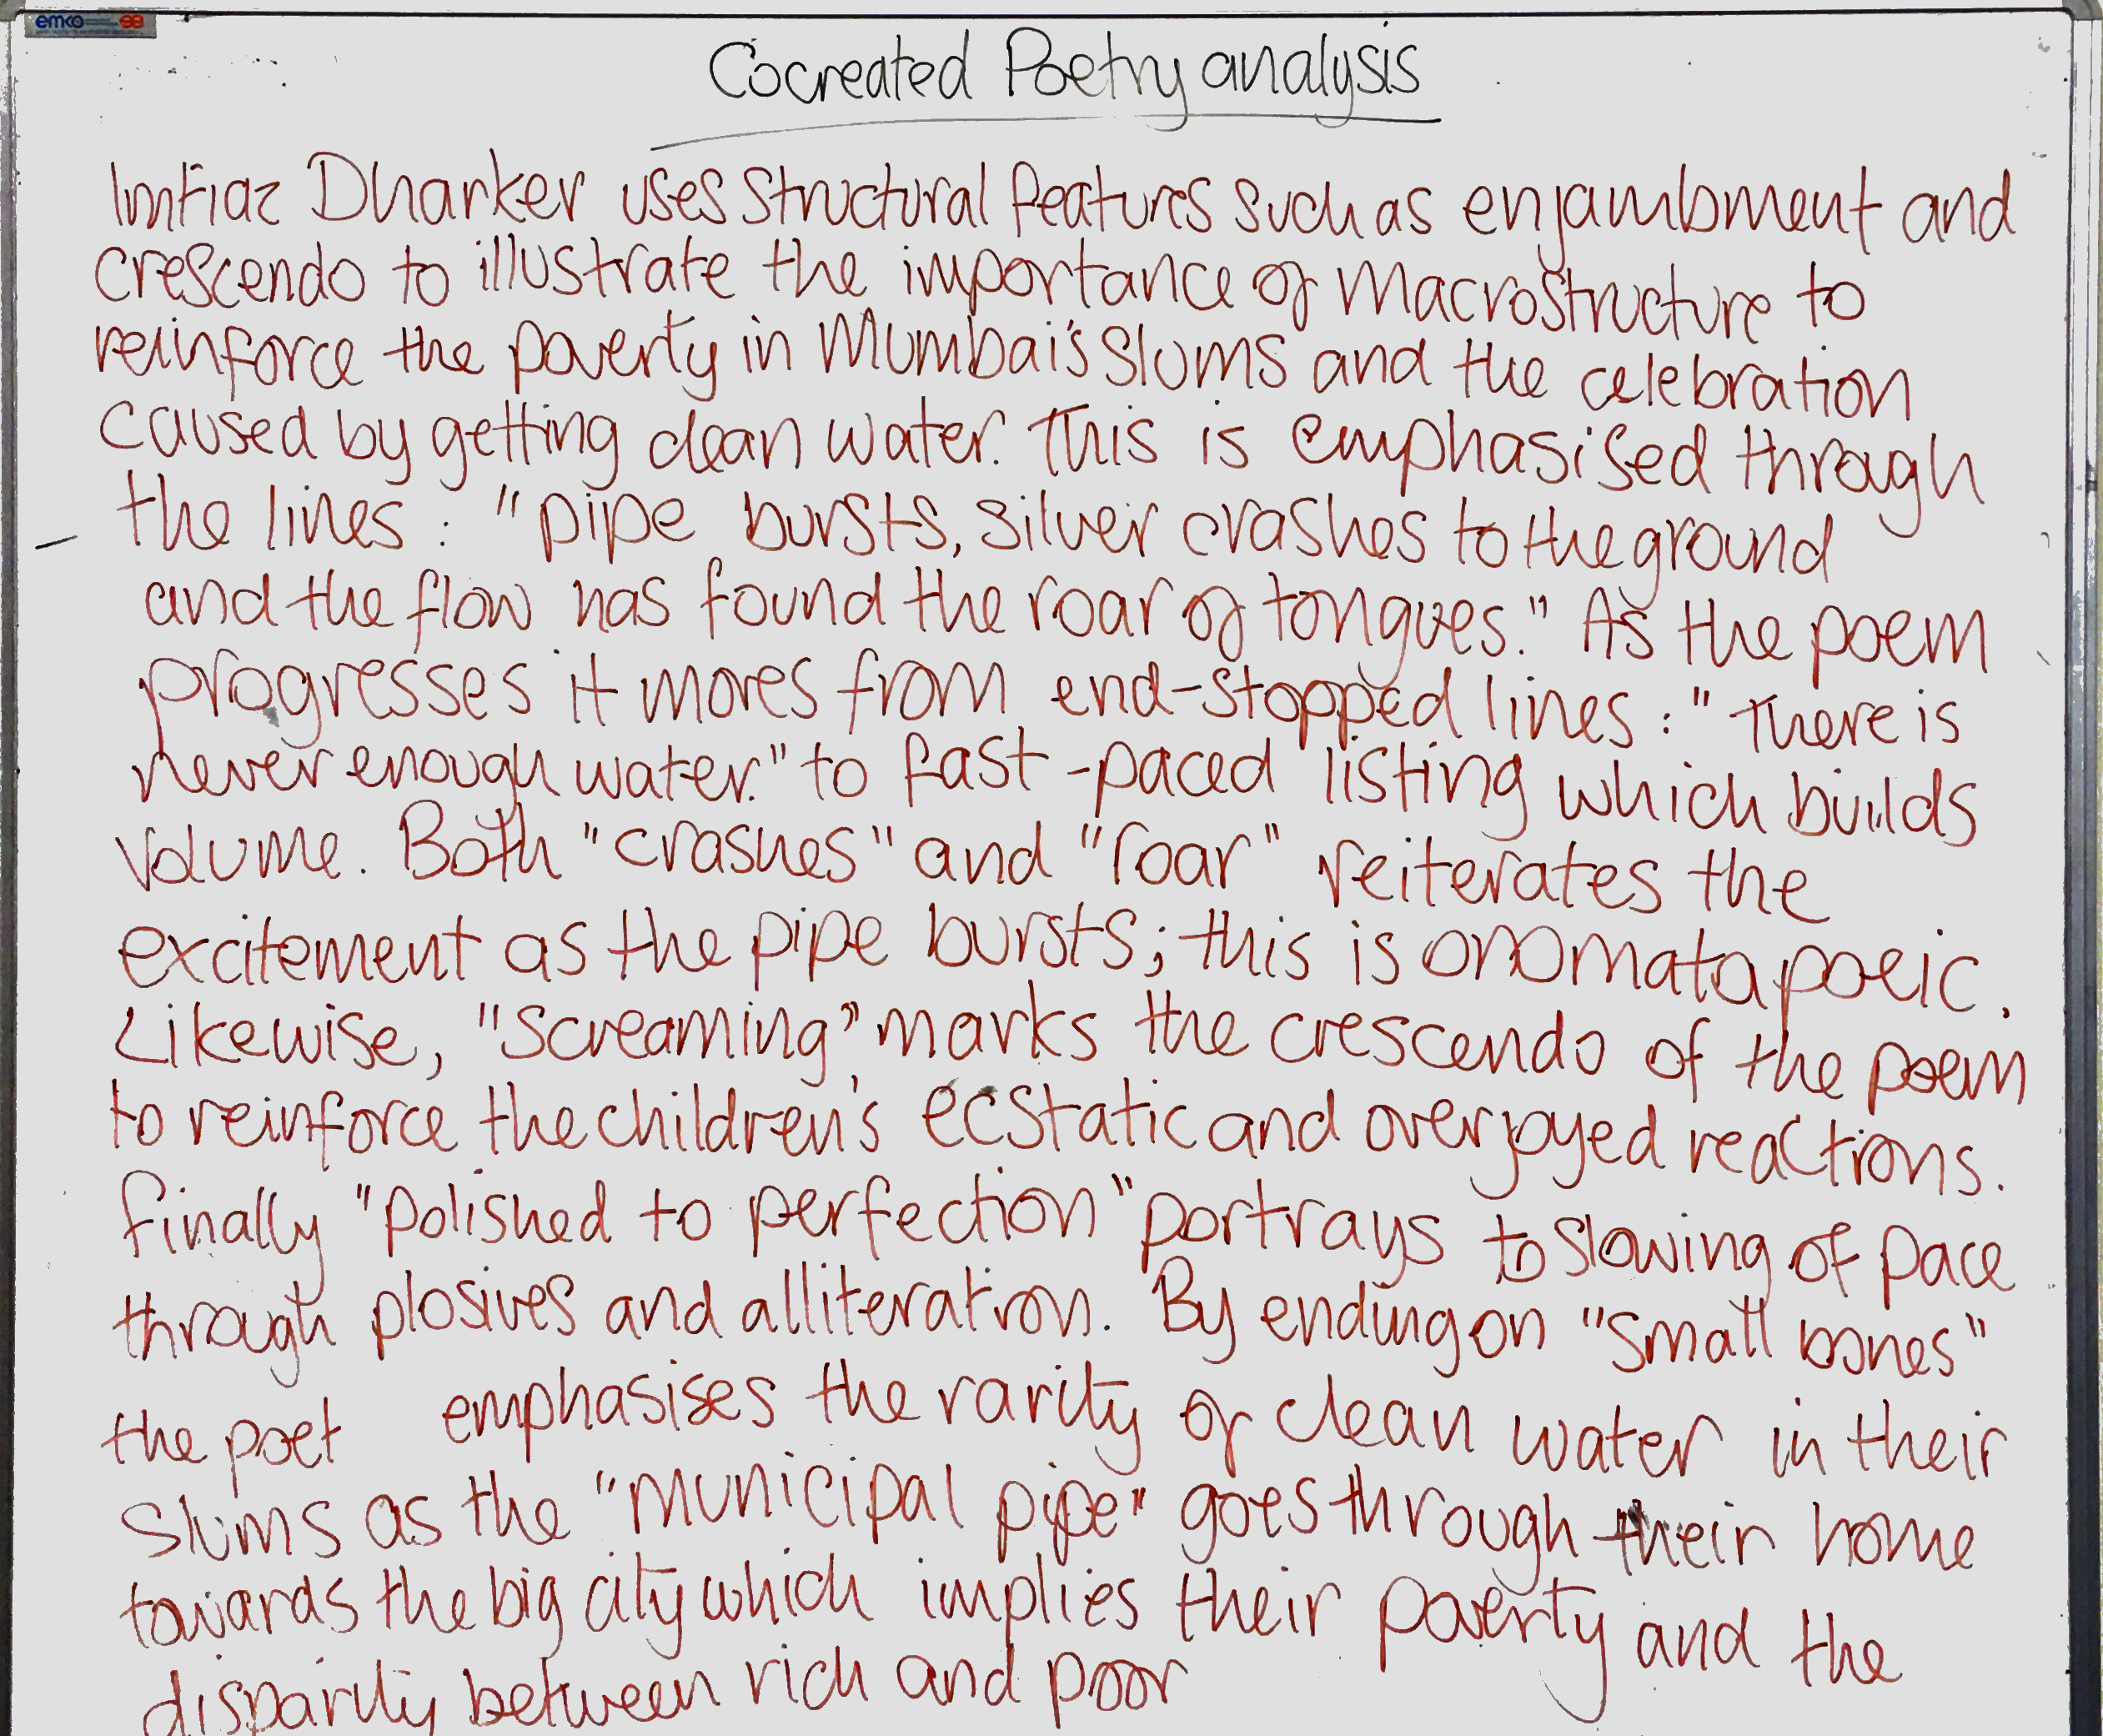 emco
Cocreated Poetry analysis
Imtiaz Dharker uses structural features such as enjambment and
crescendo to illustrate the importance of macrostructure to
reinforce the poverty in Mumbai's slums and the celebration
caused by getting clean water. This is emphasised through
the lines: "pipe bursts, silver crashes to the ground
and the flow has found the roar of tongues." As the poem
progresses it moves from end-stopped lines: "There is
never enough water." to fast-paced listing which builds
volume. Both "crashes" and "roar" reiterates the
excitement as the pipe bursts; this is onomatapoeic.
Likewise, "screaming" marks the crescendo of the poem
to reinforce the children's ecstatic and overjoyed reactions.
Finally "polished to perfection" portrays to slowing of pace
through plosives and alliteration. By ending on "small bones"
the poet emphasises the rarity of clean water in their
slums as the "municipal pipe" goes through their home
towards the big city which implies their poverty and the
disparity between rich and poor